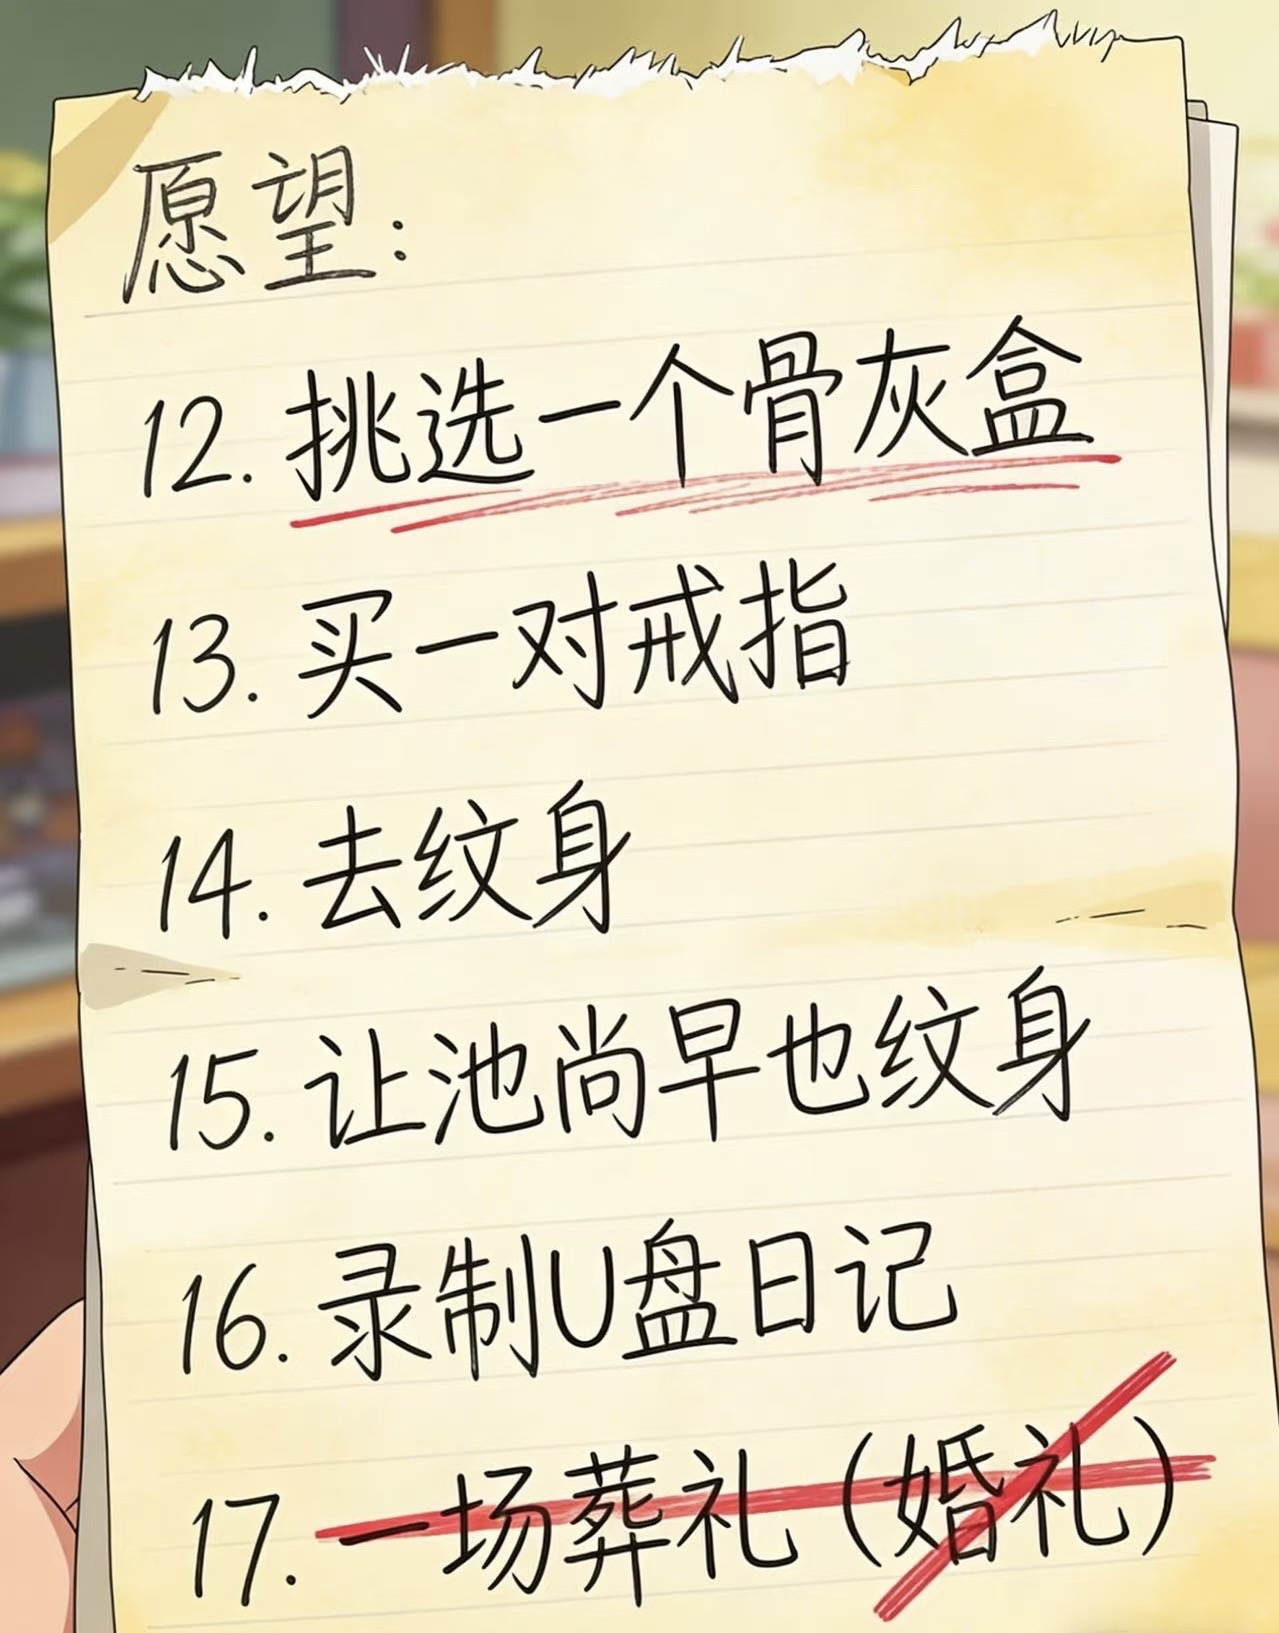 愿望:
12. 挑选一个骨灰盒
13. 买一对戒指
14. 去纹身
15. 让池尚早也纹身
16. 录制U盘日记
17. 一场葬礼(婚礼)